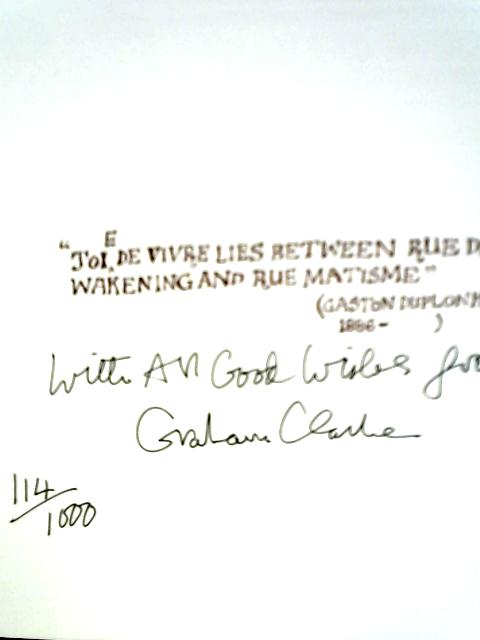 E
"JOI, DE VIVRE LIES BETWEEN RUE D
WAKENING AND RUE MATISME"
(GASTON DUPLONK
1866- )
With All Good Wishes from
Graham Clarke
114/1000